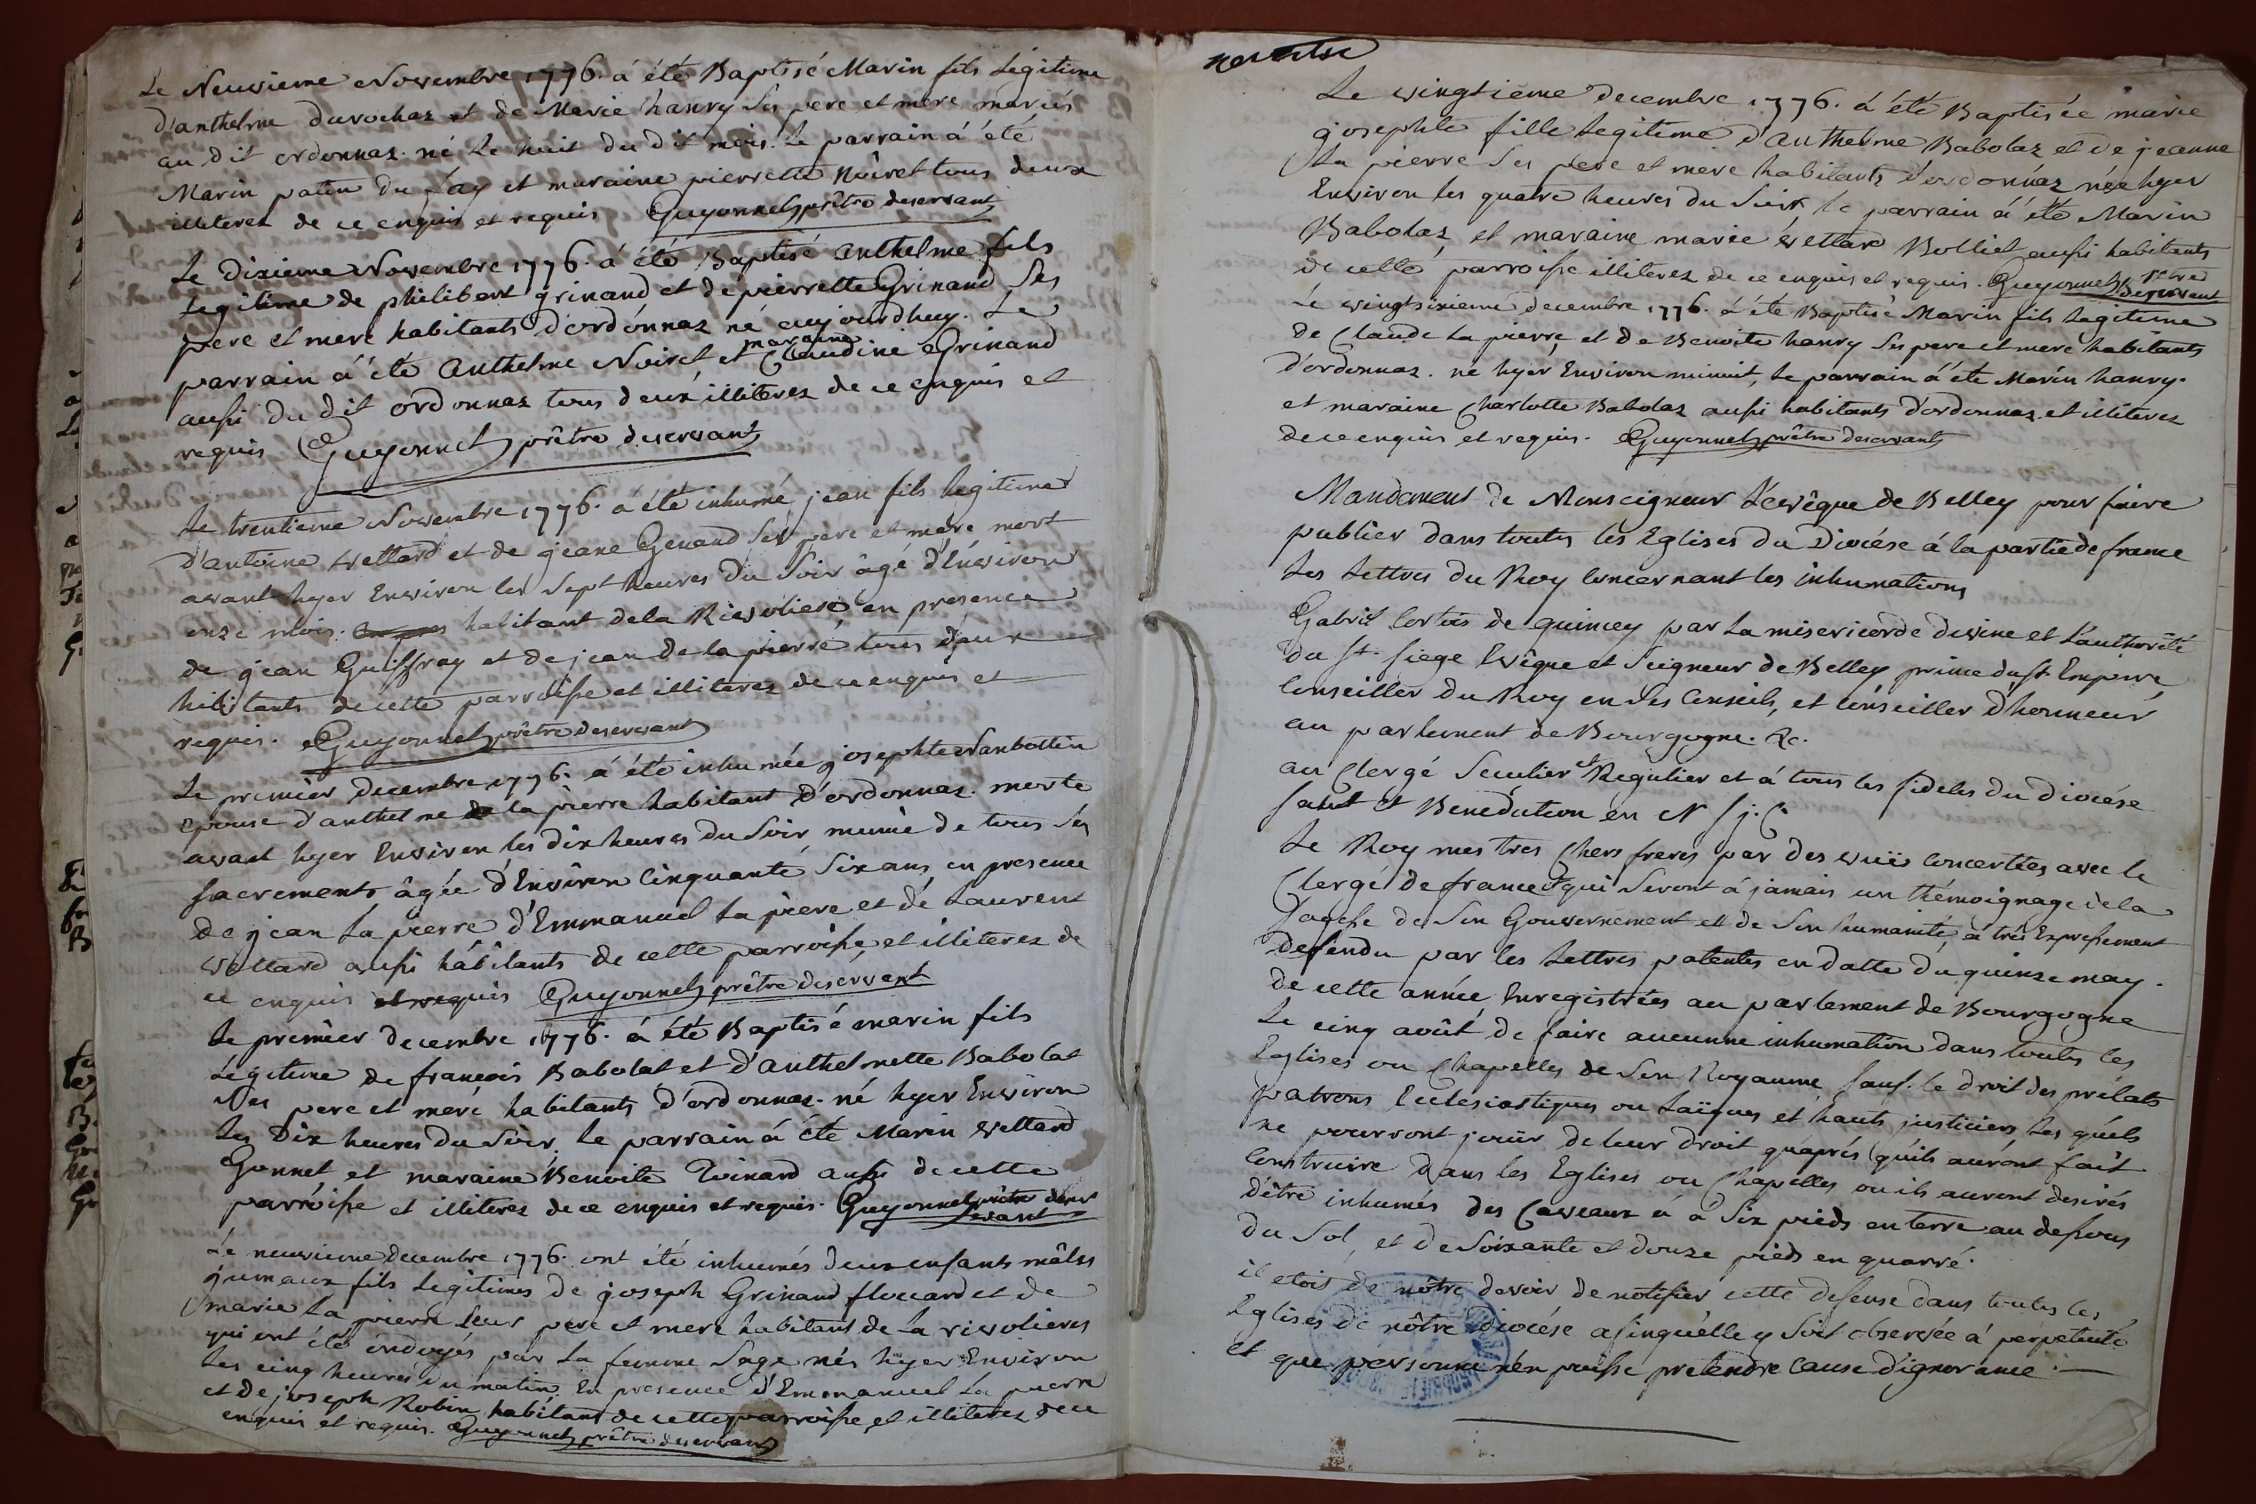 Le Neuvieme Novembre 1776. á été Baptisé Marin fils Légitime
d'anthelme durochaz et de Marie hanry ses pere et mere mariés
au dit ordonnaz. né Le huit du dit mois. Le parrain á été
Marin patin du fay et maraine pierrette Noiret tous deux
illiterez de ce enquis et requis Guyonnet prêtre deservant
Le Dixieme Novembre 1776. á été Baptisé anthelme fils
Legitime de philibert grinand et de pierrette Grinand Ses
pere et mere habitants d'ordonnaz né aujourdhuy. Le
parrain á été anthelme Noiret et maraine Claudine Grinand
aussi du dit ordonnaz tous deux illiterez de ce enquis et
requis Guyonnet prêtre deservant
Le trentieme Novembre 1776. á été inhumé jean fils legitime
d'antoine vettard et de jeane Genaud Ses pere et mere mort
avant hyer Environ les Sept heures du Soir âgé d'Environ
onze mois. habitant de la Rivoliere en presence
de jean Guiffray et de jean de la pierre tous deux
hibitants de cette parroisse et illiterez de ce enquis et
requis. Guyonnet prêtre deservant
Le premier decembre 1776. á été inhumée josephte Nanbottin
epouse d'anthelme de la pierre habitant d'ordonnaz. morte
avant hyer Environ les dix heures du Soir munie de tous Ses
sacrements âgée d'Environ Cinquante Six ans en presence
de jean La pierre d'Emmanuel La pierre et de Laurent
Vettard aussi habitants de cette parroisse, et illiterez de
ce enquis et requis Guyonnet prêtre deservant
Le premier decembre 1776. á été Baptisé marin fils
Légitime de françois Babolat et d'anthelmette Babolat
Ses pere et meré habitants d'ordonnaz. né hyer Environ
les Dix heures du Soir. Le parrain á été Marin vettard
Gonnet et maraine Benoite Grinand aussi de cette
parroisse et illiterez de ce enquis et requis. Guyonnet prêtre deser
vant
Le neuvieme decembre 1776. ont été inhumés deux enfants mâles
jumeaux fils Legitimes de joseph Grinand floccard et de
marie La pierre leur pere et mere habitant de la rivolieres
qui ont été ondoyés par la femme Sage nés hyer Environ
les cinq heures du matin. En presence d'Emmanuel La pierre
et de joseph Robin habitant de cette parroisse, et illiterez de ce
enquis et requis. Guyonnet prêtre deservant
Le vingtieme decembre 1776. á été Baptisée marie
josephte fille Legitime d'anthelme Babolaz et de jeanne
La pierre Ses pere et mere habitants d'ordonnaz née hyer
Environ les quatre heures du Soir, le parrain á été Marin
Babolaz, et maraine marie vettard Bolliet aussi habitants
de cette parroisse illiterez de ce enquis et requis. Guyonnet Prêtre
Deservant
Le vingtsixieme decembre 1776. á été Baptisé Marin fils Legitime
de Claude La pierre, et de Benoite hanry Ses pere et mere habitants
d'ordonnaz. né hyer Environ minuit, Le parrain á été Marin hanry.
et maraine Charlotte Babolaz aussi habitants d'ordonnaz et illiterez
de ce enquis et requis. Guyonnet prêtre deservant
Mandement de Monseigneur L'evêque de Belley pour faire
publier dans toutes les Eglises du Diocése á la partie de france
Les Lettres du Roy Concernant les inhumations
Gabriel Cortois de quincey par la misericorde divine et L'authorité
du St. Siege Evêque et Seigneur de Belley prince du St. Empire,
Conseiller du Roy en Ses Conseils, et Conseiller d'honneur
au parlement de Bourgogne. &c.
au Clergé Seculier et Regulier et á tous les fideles du diocése
Salut et Benediction en N S j. C.
Le Roy mes tres Chers freres par des vuës Concertées avec le
Clergé de france et qui Seront á jamais un thémoignage de la
Sagesse de Son Gouvernement et de Son humanité, á très Expressement
deffendu par les Lettres patentes en datte du quinze may.
de cette année Enregistrées au parlement de Bourgogne
Le cinq août de faire aucunne inhumation dans toutes les
Eglises ou Chapelles de Son Royaume sauf. le droit des prélats
patrons Ecclesiastiques ou Laïques et hauts justiciers, Les quels
ne pourront joüir de leur droit qu'aprés qu'ils auront fait
Construire dans les Eglises ou Chapelles ou ils auront desirés
d'être inhumés des Caveaux á Six pieds en terre au dessous
du Sol, et de Soixante et douze pieds en quarré.
il etoit de nôtre devoir de notifier cette defense dans toutes les
Eglises de nôtre Diocése afin qu'elle y Soit observée á perpetuité
et que personne n'en puisse pretendre Cause d'ignorance.